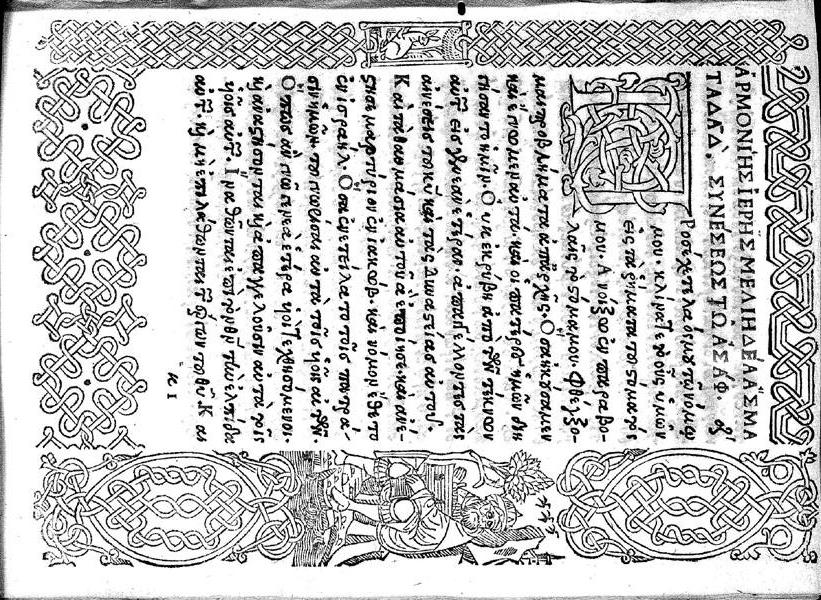 ἉΡΜΟΝΊΗΣ ἹΕΡῆΣ ΜΕΛΙΗΔΈΑ ἌΣΜΑ
ΤΑ ΔΑΔ. ΣΥΝΈΣΕΩΣ Τῶ ἈΣΆΦ. οζ
Προσέχετε λαόσ μου τῶ νόμω
μου. κλίνατε τὸ οὖς ὑμῶν
εἰς τὰ ῥήματα τοῦ στόματός
μου. Ἀνοίξω ἐν παραβο-
λαῖς τὸ στόμα μου. Φθέγξο-
μαι προβλήματα ἀπ' ἀρχῆς. Ὅσα ἠκούσαμεν
καὶ ἔγνωμεν αὐτὰ. καὶ οἱ πατέρες ἡμῶν διη
γήσαντο ἡμῖν. Οὐκ ἐκρύβη ἀπὸ τῶν τέκνων
αὐτῶν εἰς γενεὰν ἑτέραν. ἀπαγγέλλοντες τὰς
αἰνέσεις τοῦ κυ καὶ τὰς δυναστείας αὐτοῦ.
Καὶ τὰ θαυμάσια αὐτοῦ ἃ ἐποίησε. καὶ ἀνέ-
στησε μαρτύριον ἐν ἰακώβ. καὶ νόμον ἔθετο
ἐν ἰσραήλ. Ὅσα ἐνετείλατο τοῖς πατρά-
σιν ἡμῶν. τοῦ γνωρίσαι αὐτὰ τοῖς υἱοῖς αὐτῶν.
Ὅπως ἂν γνῶ γενεὰ ἑτέρα υἱοὶ τεχθησόμενοι.
καὶ ἀναστήσονται καὶ ἀπαγγελοῦσιν αὐτὰ τοῖς
υἱοῖς αὐτῶν. Ἵνα θῶνται ἐπὶ τὸν θν τὴν ἐλπίδα
αὐτῶν. καὶ μὴ ἐπιλάθωνται τῶν ἔργων τοῦ θυ. Καὶ
κ ι